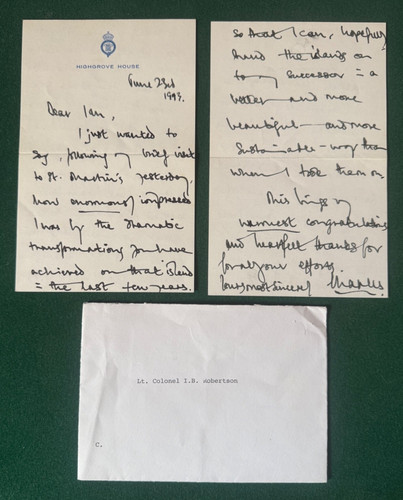 HIGHGROVE HOUSE
June 23rd
1993.
Dear Ian,
I just wanted to
say, following my brief visit
to St. Martin's yesterday,
how enormously impressed
I was by the dramatic
transformations you have
achieved on that island
in the last ten years.
so that I can, hopefully
hand the islands on
to my successor in a
better and more
beautiful and more
sustainable way than
when I took them on.
This brings my
warmest congratulations
and heartfelt thanks for
for all your efforts.
Yours most sincerely
Charles
Lt. Colonel I.B. Robertson
C.